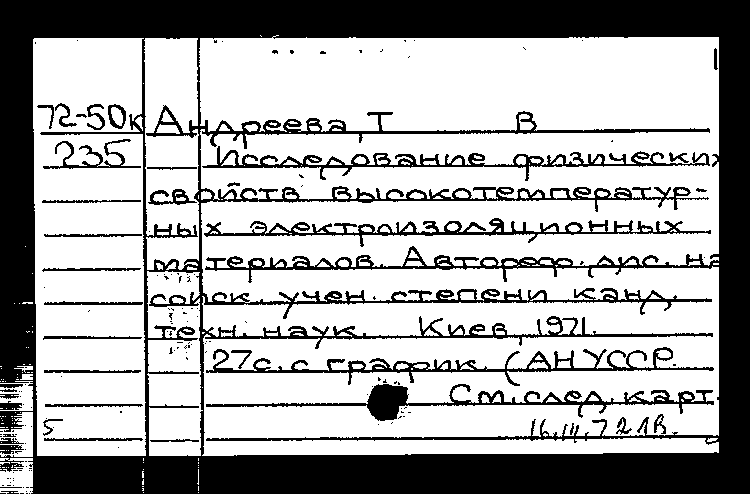 72-50к Андреева, Т В
235 Исследование физических
свойств высокотемператур-
ных электроизоляционных
материалов. Автореф. дис. на
соиск. учен. степени канд.
техн. наук. Киев, 1971.
27с. с график. (АН УССР.
См. след. карт.
5 16.III.72 1В.